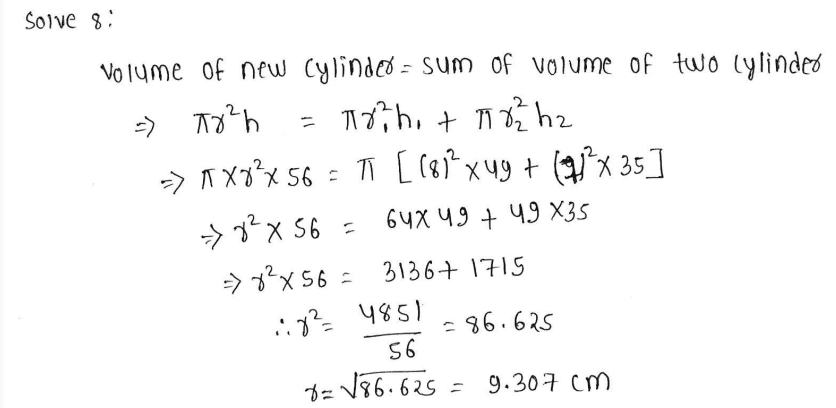 Solve 8:
Volume of new cylinder = sum of volume of two cylinder
⇒ πr²h = πr₁²h₁ + πr₂²h₂
⇒ π×r²×56 = π [(8)²×49 + (7)²×35]
⇒ r²×56 = 64×49 + 49×35
⇒ r²×56 = 3136+1715
∴r²= 4851/56 = 86.625
r=√86.625 = 9.307 cm